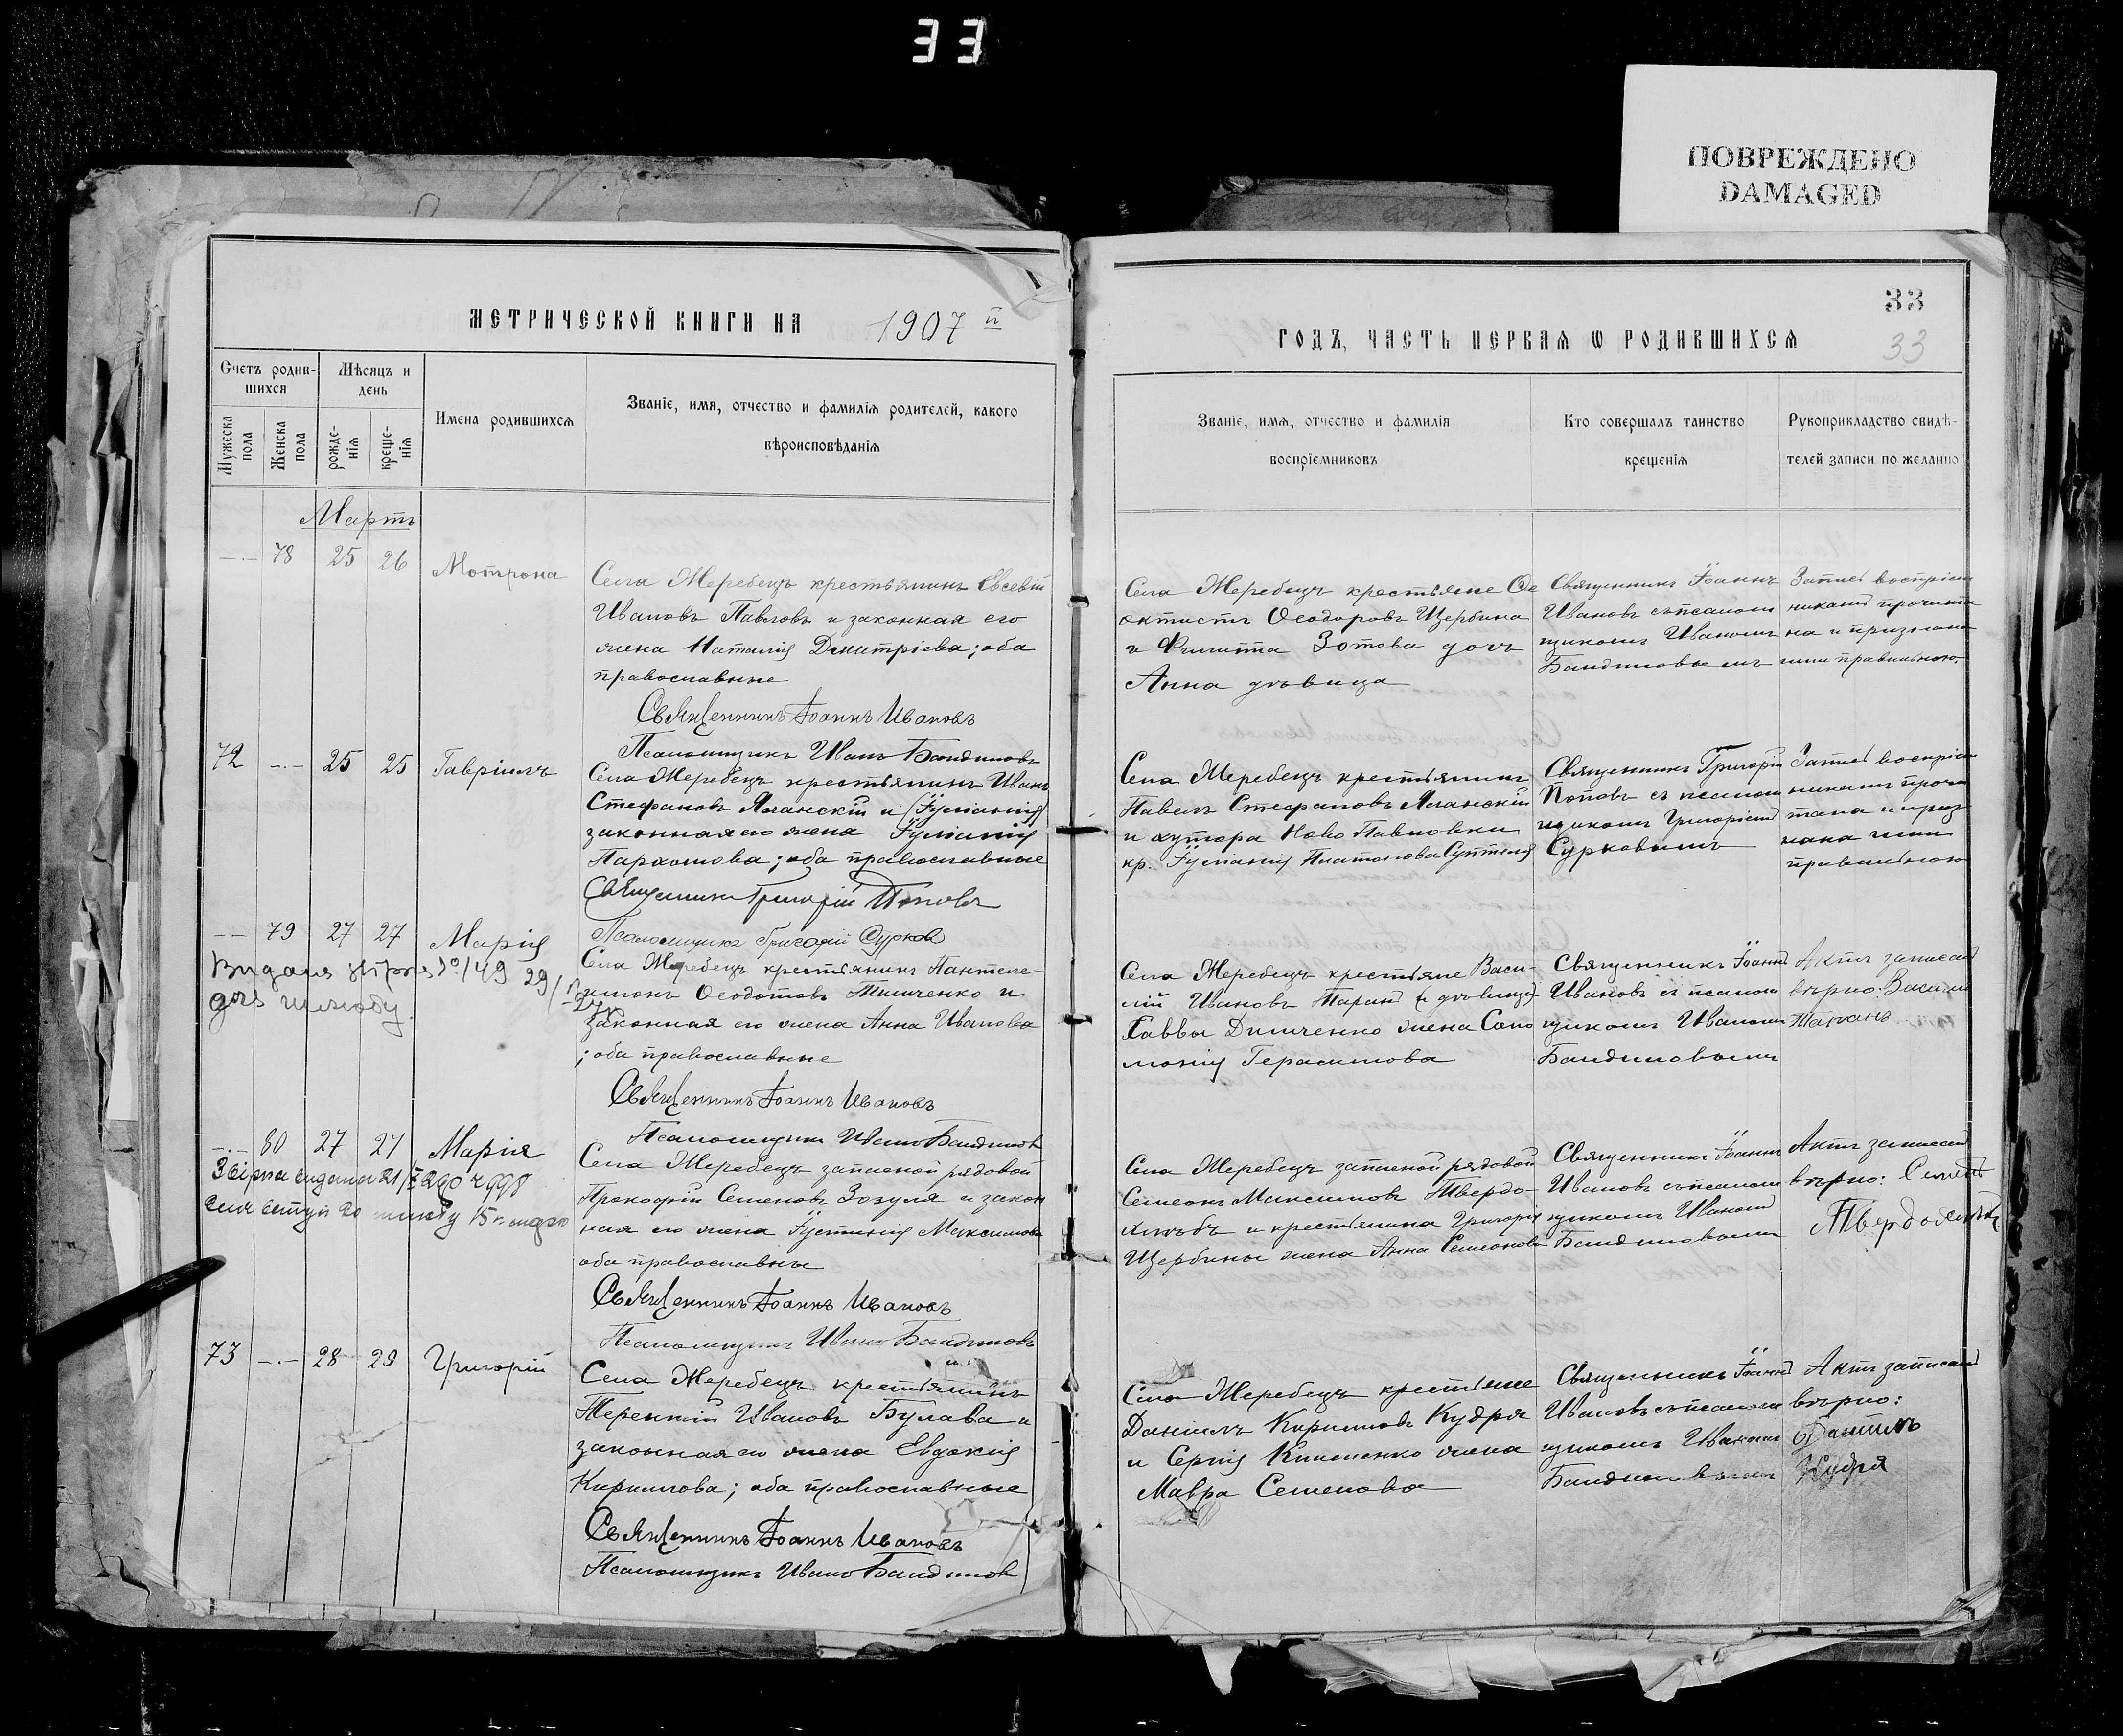 33
ПОВРЕЖДЕНО
DAMAGED
МЕТРИЧЕСКОЙ КНИГИ НА 1907 й
Счетъ родив-
шихся
Мѣсяцъ и
день
Мужеска
пола
Женска
пола
рожде-
нія
креще-
нія
Имена родившихся
Званіе, имя, отчество и фамилія родителей, какого
вѣроисповѣданія
Мартъ
78 25 26 Мотрона
Села Жеребецъ крестьянинъ Евсевій
Ивановъ Павловъ и законная его
жена Наталія Димитріева; оба
православные
Священникъ Іоаннъ Ивановъ
Псаломщикъ Иванъ Бандиловъ
72 25 25 Гавріилъ
Села Жеребецъ крестьянинъ Иванъ
Стефановъ Ячанскій и (Іуліанія)
законная его жена Іуліанія
Пархомова; оба православные
Священникъ Григорій Поповъ
Псаломщикъ Григорій Сурков
79 27 27 Марія
149 29/
Села Жеребецъ крестьянинъ Пантеле-
имонъ Ѳеодотовъ Тимченко и
законная его жена Анна Иванова
; оба православные
Священникъ Іоаннъ Ивановъ
Псаломщикъ Иванъ Бандиловъ
80 27 27 Марія
Села Жеребецъ запасной рядовой
Прокофій Семеновъ Зозуля и закон
ная его жена Іустинія Максимова
оба православные
Священникъ Іоаннъ Ивановъ
Псаломщикъ Иванъ Бандиловъ
73 28 29 Григорій
Села Жеребецъ крестьянинъ
Терентій Ивановъ Булава и
законная его жена Евдокія
Кириллова; оба православные
Священникъ Іоаннъ Ивановъ
Псаломщикъ Иванъ Бандилов
33
33
ГОДЪ, ЧАСТЬ ПЕРВАЯ Ѡ РОДИВШИХСЯ
Званіе, имя, отчество и фамилія
воспріемниковъ
Кто совершалъ таинство
крещенія
Рукоприкладство свидѣ-
телей записи по желанію
Села Жеребецъ крестьяне Ѳе
октистъ Ѳеодоровъ Щербина
и Филиппа Зотова дочь
Анна дѣвица
Священникъ Іоаннъ
Ивановъ съ псалом
щикомъ Иваномъ
Бандиловымъ
Запись воспріем
никамъ прочита
на и признана
ими правильною.
Села Жеребецъ крестьянинъ
Павелъ Стефановъ Ячанскій
и хутора Ново Павловки
кр. Іуліанія Платонова
Священникъ Григорій
Поповъ съ псалом
щикомъ Григоріемъ
Сурковымъ
Запись воспріем
никамъ прочи
тана и приз
нана ими
правильною
Села Жеребецъ крестьяне Васи-
лій Ивановъ Таранъ (и дѣвица)
Саввы Димченко жена Соло
монія Герасимова
Священникъ Іоаннъ
Ивановъ съ псалом
щикомъ Иваномъ
Бандиловымъ
Актъ записанъ
вѣрно: Василій
Таранъ
Села Жеребецъ запасной рядовой
Симеонъ Максимовъ Твердо-
хлѣбъ и крестьянина Григорія
Щербины жена Анна Семеонова
Священникъ Іоаннъ
Ивановъ съ псалом
щикомъ Иваномъ
Бандиловымъ
Актъ записанъ
вѣрно: Семенъ
Твердохлѣбъ
Села Жеребецъ крестьяне
Даніилъ Кирилловъ Кудря
и Сергія Клименко жена
Мавра Семенова
Священникъ Іоаннъ
Ивановъ съ псалом
щикомъ Иваномъ
Бандиловымъ
Актъ записанъ
вѣрно:
Даниилъ
Кудря